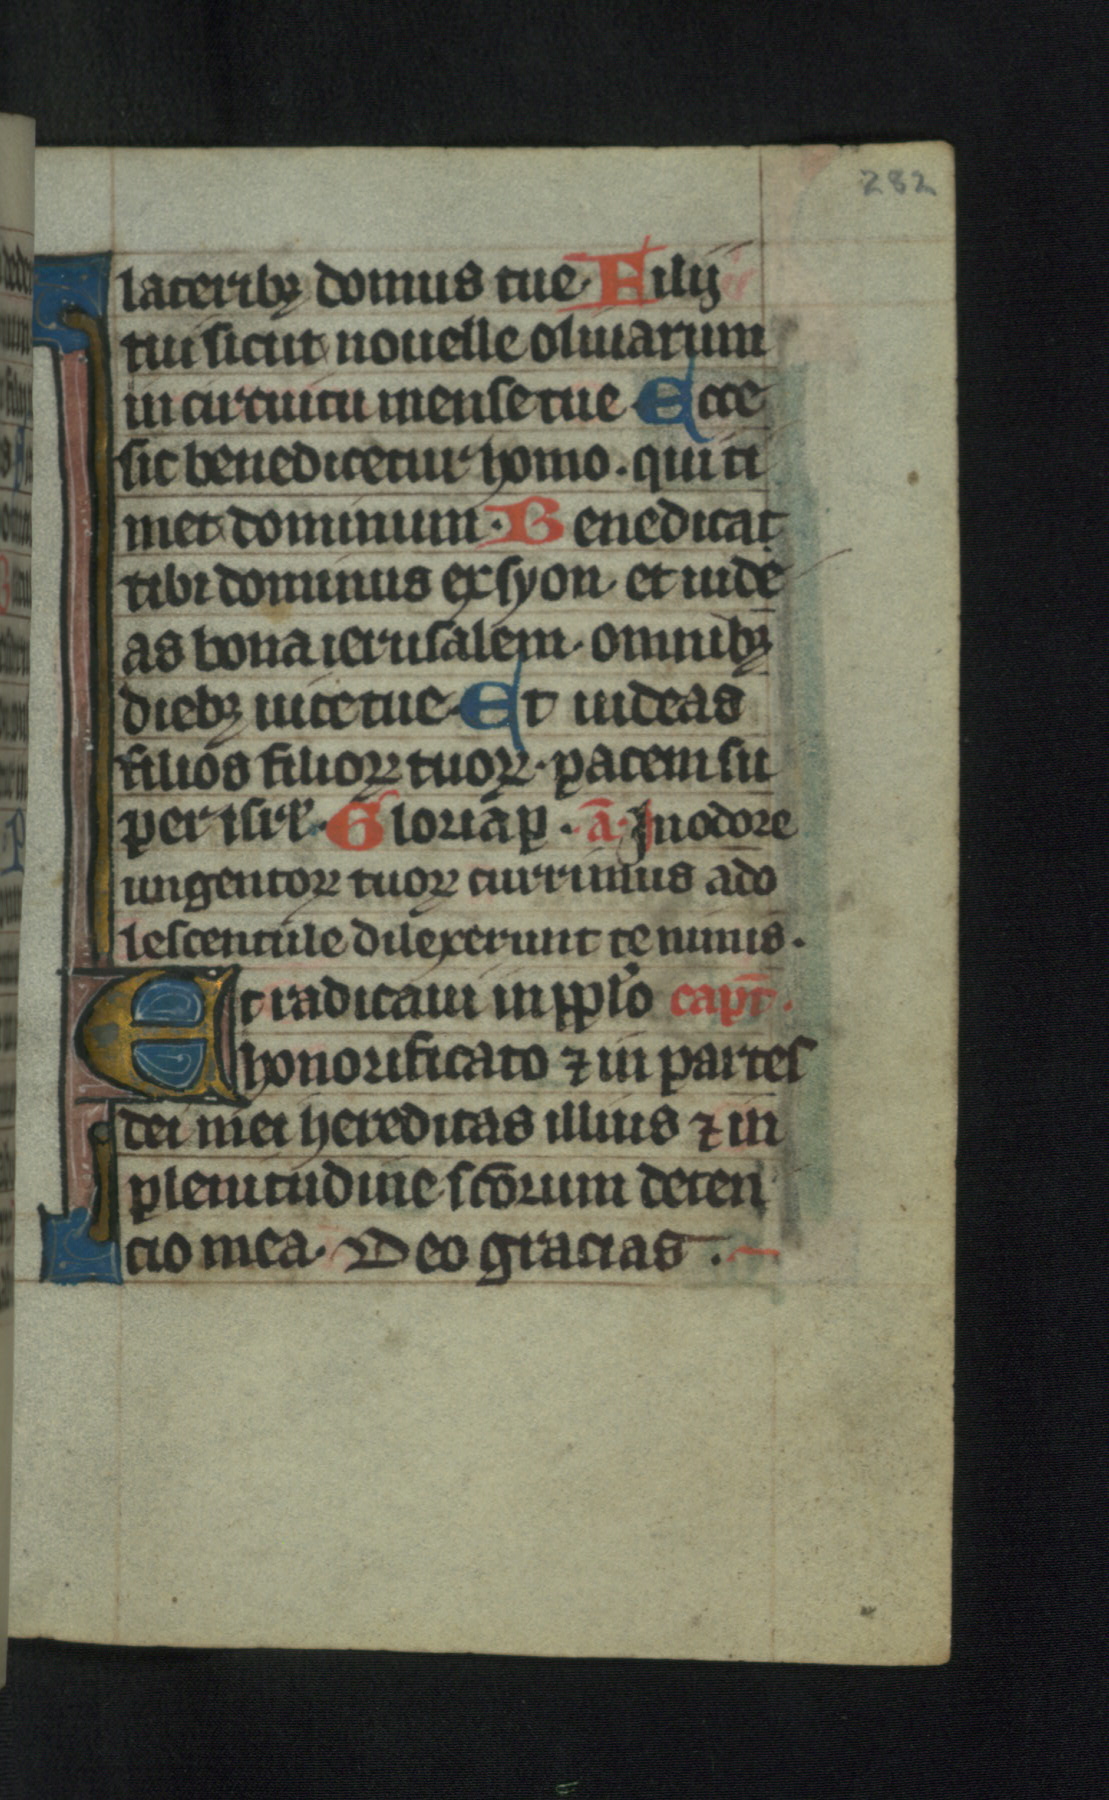 282
laterib⁊ domus tue· Filij
tui sicut nouelle oliuarum
in circuitu mense tue Ecce
sic benedicetur homo. qui ti
met dominum· Benedicat
tibi dominus ex syon· et uide
as bona ierusalem· omnib⁊
dieb⁊ uite tue· Et uideas
filios filioꝝ tuoꝝ· pacem su
per isrl̄· Gloria p̄. ā· In odore
ungentoꝝ tuoꝝ currimus ado
lescentule dilexerunt te nimis.
Et radicaui in pplo capt̄.
honorificato ⁊ in partes
dei mei hereditas illius ⁊ in
plenitudine scōrum deten
cio mea· Deo gracias.